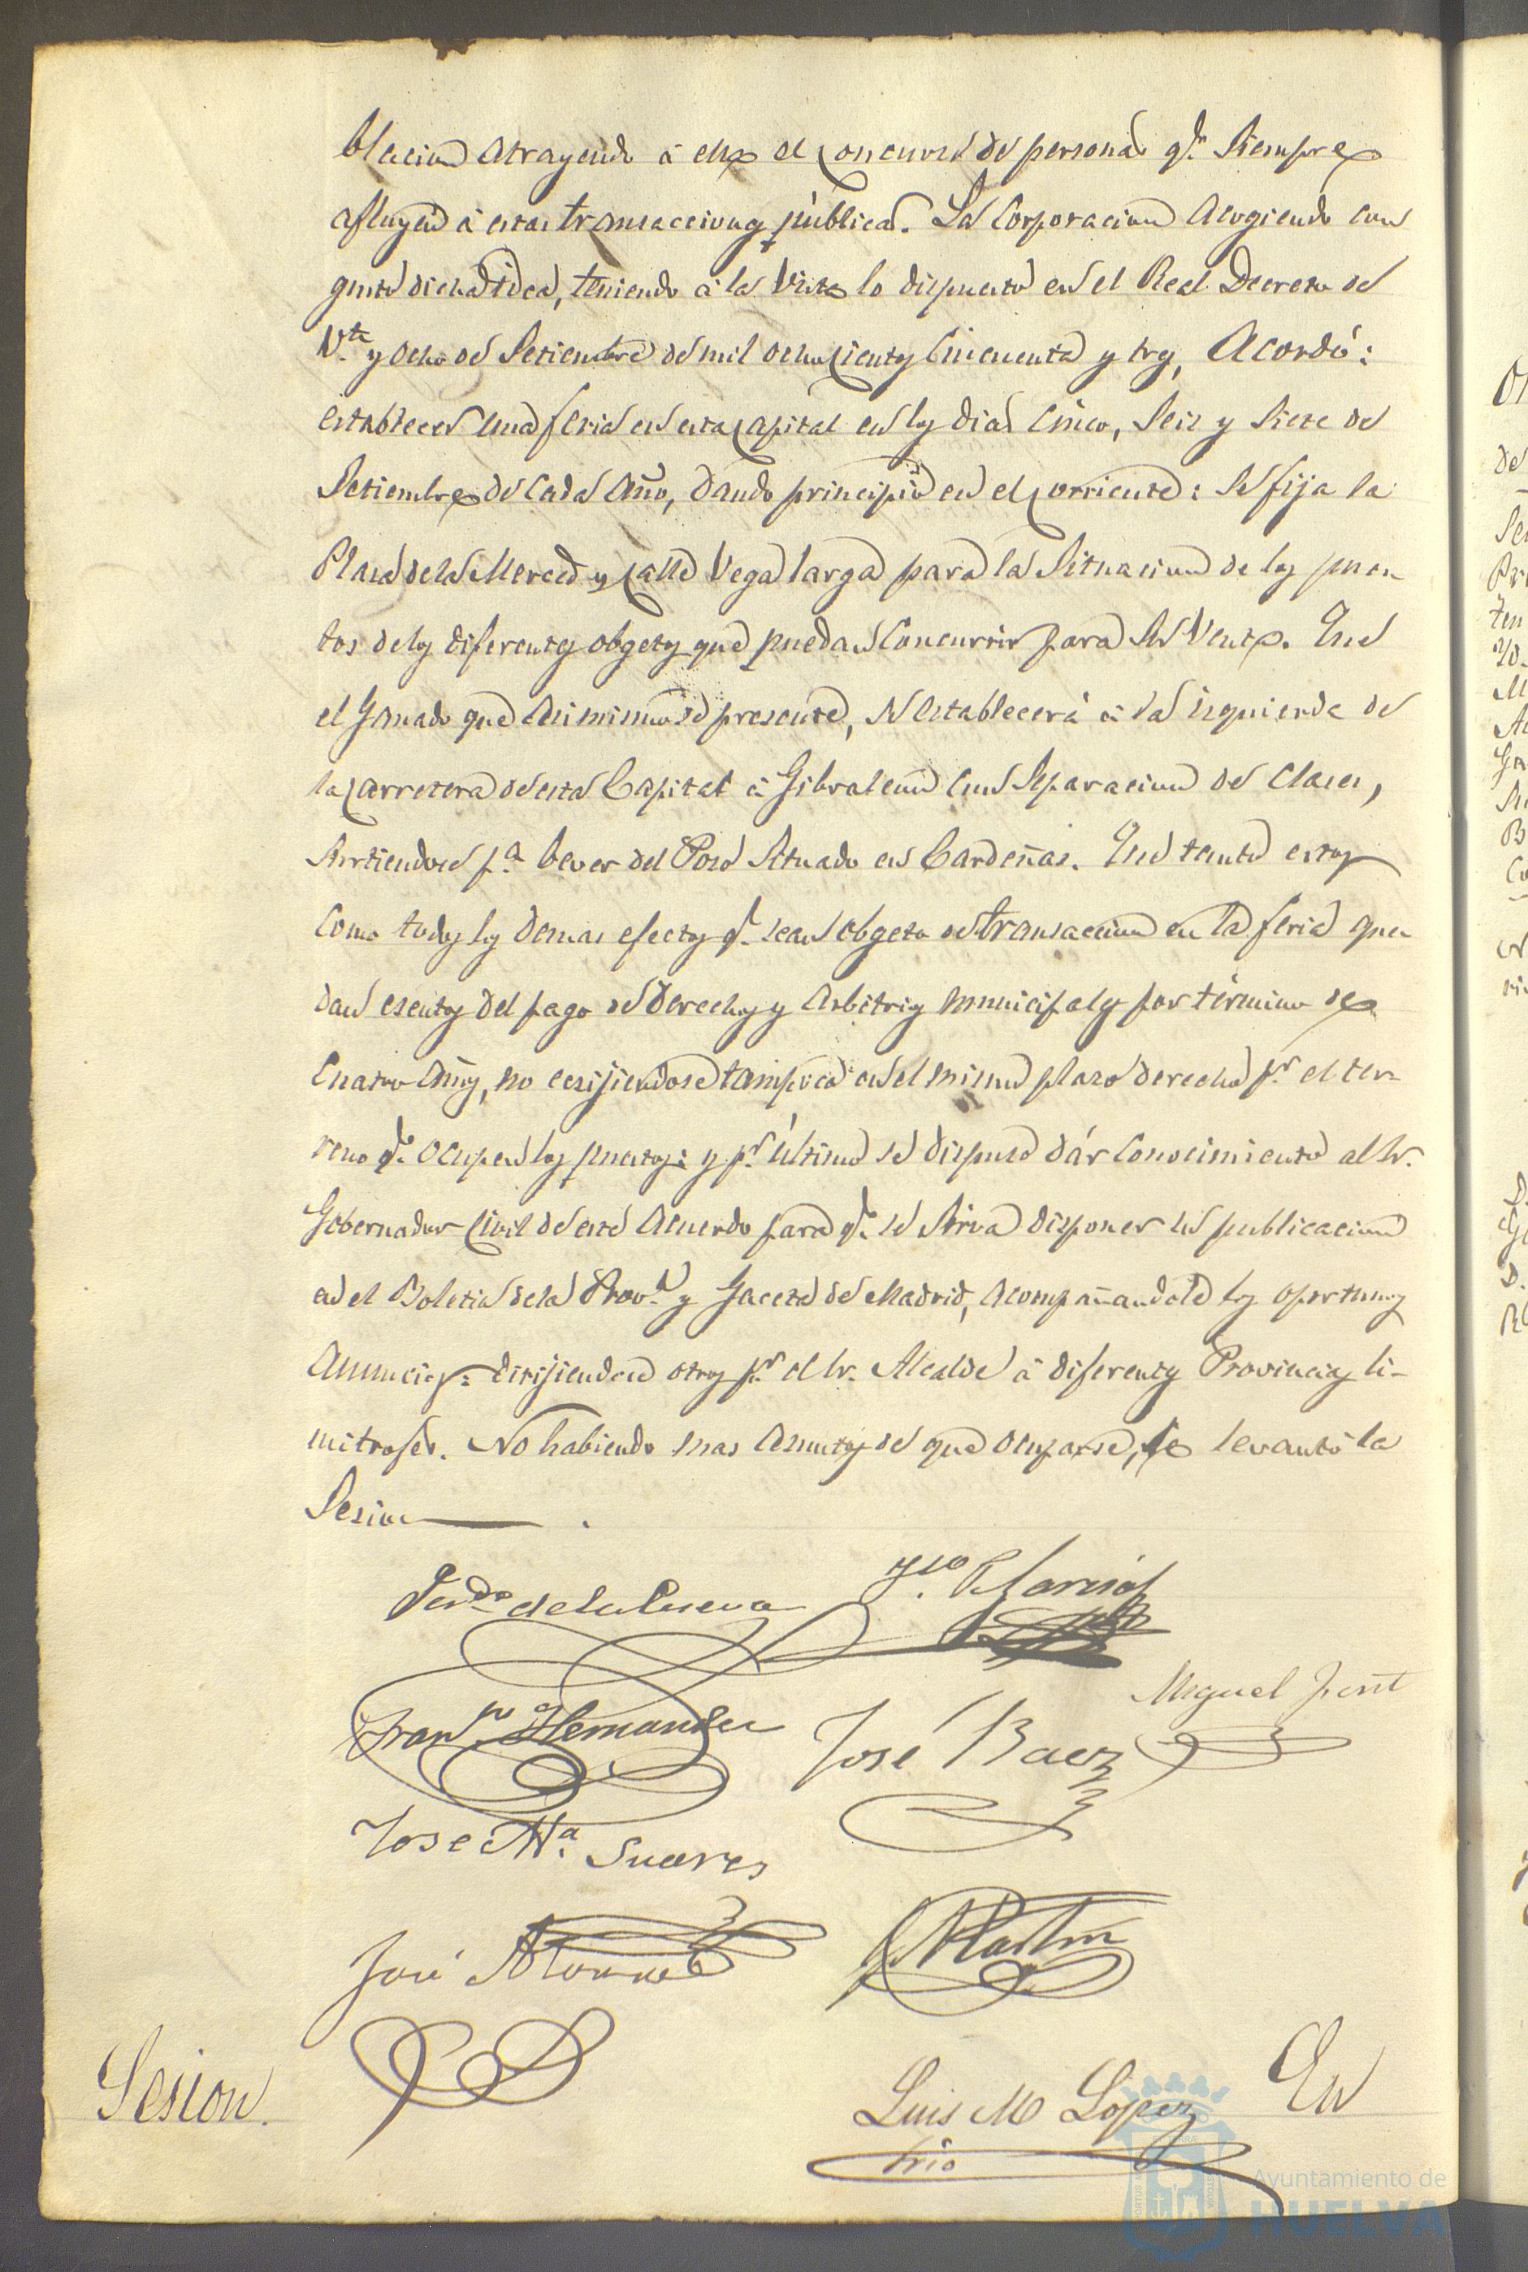 blacion atrayendo á ella el concurso de personas q.e siempre
afluyen á estas transacciones públicas. La Corporacion acogiendo con
gusto dicha idea, teniendo á la vista lo dispuesto en el Real Decreto de
V.te y ocho de Setiembre de mil ochocientos cincuenta y tres, Acordó:
establecer una feria en esta capital en los dias cinco, seis y siete de
Setiembre de cada año, dando principio en el corriente: se fija la
Plaza de la Merced y calle Vega larga para la situacion de los pues-
tos de los diferentes obgetos que puedan concurrir para su venta. Que
el Ganado que asimismo se presente, se establecerá á la izquierda de
la carretera de esta Capital á Gibraleon con separacion de clases,
surtiendose p.a bever del Pozo situado en Cardeñas. Que tanto estos
como todos los demas efectos q.e sean obgeto de transaccion en la feria que-
dan esentos del pago de derechos y arbitrios municipales por término de
cuatro años, no ecsijiendose tampoco en el mismo plazo derecho p.r el ter-
reno q.e ocupen los puestos: y p.r último se dispuso dár conocimiento al Sr.
Gobernador Civil de este acuerdo para q.e se sirva disponer su publicacion
en el Boletin de la Prov.a y Gaceta de Madrid, acompañandole los oportunos
anuncios: dirijiendose otros p.r el Sr. Alcalde á diferentes Provincias li-
mitrofes. No habiendo mas asuntos de que ocuparse, se levantó la
Sesion
Fern.do de la Cueva
Fran.co Hernandez
José Baez
Miguel
Jose M.a Suares
José
Martin
Luis M Lopez
Srio
Sesion.
En
Ayuntamiento de
HUELVA